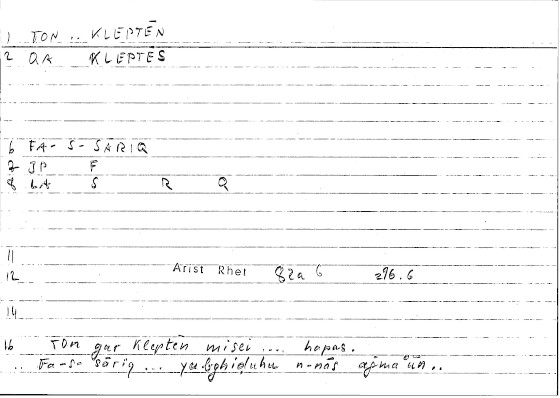 1 TON .. KLEPTĒN
2 QA KLEPTĒS
6 FA- S- SĀRIQ
7 JP F
8 LA S R Q
11
12 Arist Rhet 82a 6 296.6
14
16 TOn gar Klepten misei .... hapas.
.. Fa-s- sāriq ... yubghiḍuhu n-nās aǧmaʿūn ..